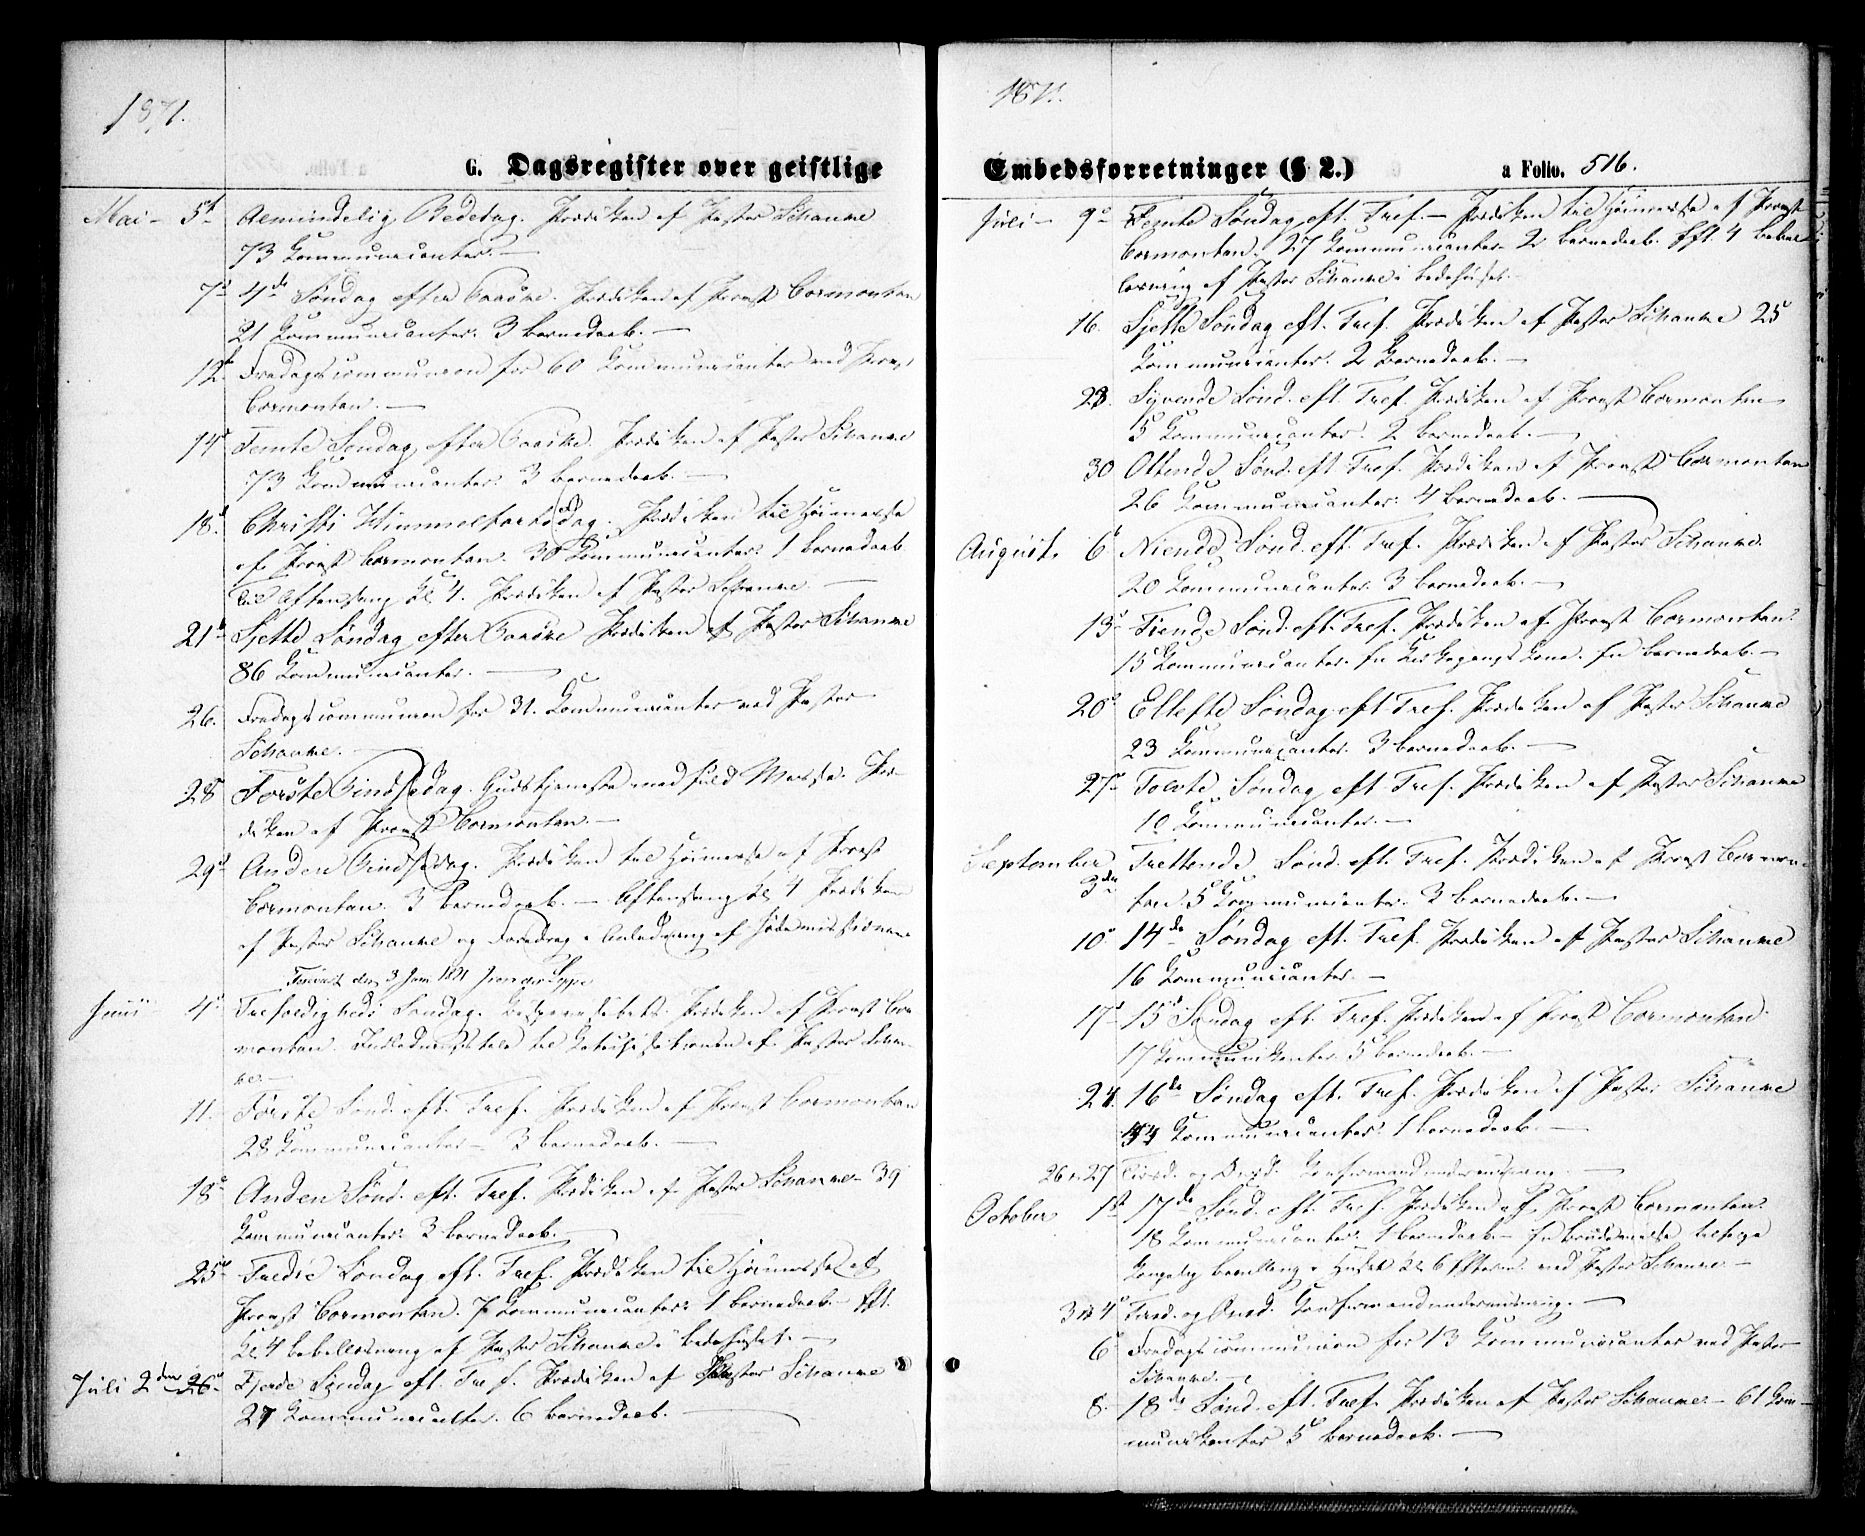 1871.
G. Dagsregister over geistlige
Mai – 5te Almindelig Bededag. Prædiken af Pastor Schanke
73 Kommunicanter. –
7de 4de Søndag efter Paaske. Prædiken af Provst Cormontan
21 Kommunicanter. 3 barnedaab. –
12te Fredagscommunion for 60 Kommunicanter ved Provst
Cormontan. –
14de Femte Søndag efter Paaske. Prædiken af Pastor Schanke
73 Kommunicanter. 3 barnedaab. –
18de Christi Himmelfartsdag. Prædiken til Høimesse
af Provst Cormontan. 30 Kommunicanter. 1 barnedaab
Til Aftensang Kl 4. Prædiken af Pastor Schanke. –
21de Sjette Søndag efter Paaske Prædiken af Pastor Schanke
86 Kommunicanter. –
26. Fredagscommunion for 31. Kommunicanter ved Pastor
Schanke. –
28de Første Pindsedag. Gudstjeneste med fuld Messe. Præ-
diken af Provst Cormontan. –
29de Anden Pindsedag. Prædiken til Høimesse af Provst
Cormontan. 3 barnedaab. – Aftensang Kl 4 Prædiken
af Pastor Schanke og Foredrag i Anledning af
den 3 Juni 1871
Juni – 4de Trefoldigheds Søndag. Prædiken af Provst Cor
montan. Indledningstale til Catechisationen af Pastor Schan-
ke. –
11. Første Sønd. eft. Tref. Prædiken af Provst Cormontan
28 Kommunicanter – 3 barnedaab. –
18de Anden Sønd. eft. Tref. Prædiken af Pastor Schanke – 39
Kommunicanter. 3 barnedaab. –
25de Tredie Søndag eft. Tref. Prædiken til Høimesse af
Provst Cormontan. 7 Kommunicanter. 1 barnedaab – Eft.
Kl 4 bibellæsning af Pastor Schanke i bedehuset. –
Juli 2den Fjerde Søndag eft. Tref. Prædiken af Pastor Schanke
27 Kommunicanter. 6 barnedaab. –
1871.
Embedsforretninger (§ 2.) a Folio. 516.
Juli – 9de Femte Søndag eft. Tref. – Prædiken til Høimesse af Provst
Cormontan. 27 Kommunicanter 2 barnedaab. Eft. 4 bibel
læsning af Pastor Schanke i bedehuset. –
16. Sjette Søndag eft. Tref. Prædiken af Pastor Schanke 25
Kommunicanter. 2 Barnedaab. –
23. Syvende Sønd. eft. Tref. Prædiken af Provst Cormontan
5 Kommunicanter. 2 barnedaab. –
30 Ottende Sønd. eft. Tref. Prædiken af Provst Cormontan
26 Kommunicanter. 4 barnedaab. –
August. 6te Niende Sønd. eft. Tref. Prædiken af Pastor Schanke.
20 Kommunicanter 3 barnedaab. –
13de Tiende Sønd. eft. Tref. Prædiken af Provst Cormontan.
15 Kommunicanter. En Kirkegangskone. En barnedaab. –
20de Ellefte Søndag eft Tref. Prædiken af Pastor Schanke
23 Kommunicanter. 3 barnedaab. –
27de Tolvte Søndag eft. Tref. Prædiken af Pastor Schanke
10 Kommunicanter. –
September 3die Trettende Sønd. eft. Tref. Prædiken af Provst Cormon
tan 5 Kommunicanter. 3 barnedaab. –
10de 14de Søndag eft. Tref. Prædiken af Pastor Schanke
16 Kommunicanter. –
17de 15de Søndag eft. Tref. Prædiken af Provst Cormontan.
17 Kommunikanter 5 barnedaab. –
24. 16de Søndag eft. Tref. Prædiken af Pastor Schanke
Kommunicanter. 1 barnedaab. –
26 & 27 Tirsd. og Onsd. Konfirmandundervisning. –
October 1ste 17de Sønd. eft. Tref. Prædiken af Provst Cormontan.
18 Kommunicanter. 1 barnedaab – En brudevielse ifølge
Kongelig bevilling i Huset Kl 6 Efterm. ved Pastor Schanke –
3 & 4de Tirsd. og Onsd. Konfirmandundervisning. –
6te Fredagscommunion for 13 Kommunicanter ved Pastor
Schanke. –
8. 18de Sønd. eft. Tref. Prædiken af Pastor Schanke – 61 Kom-
munikanter 5 barnedaab. –